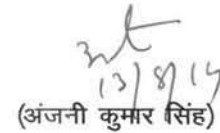 13/8/14
(अंजनी कुमार सिंह)